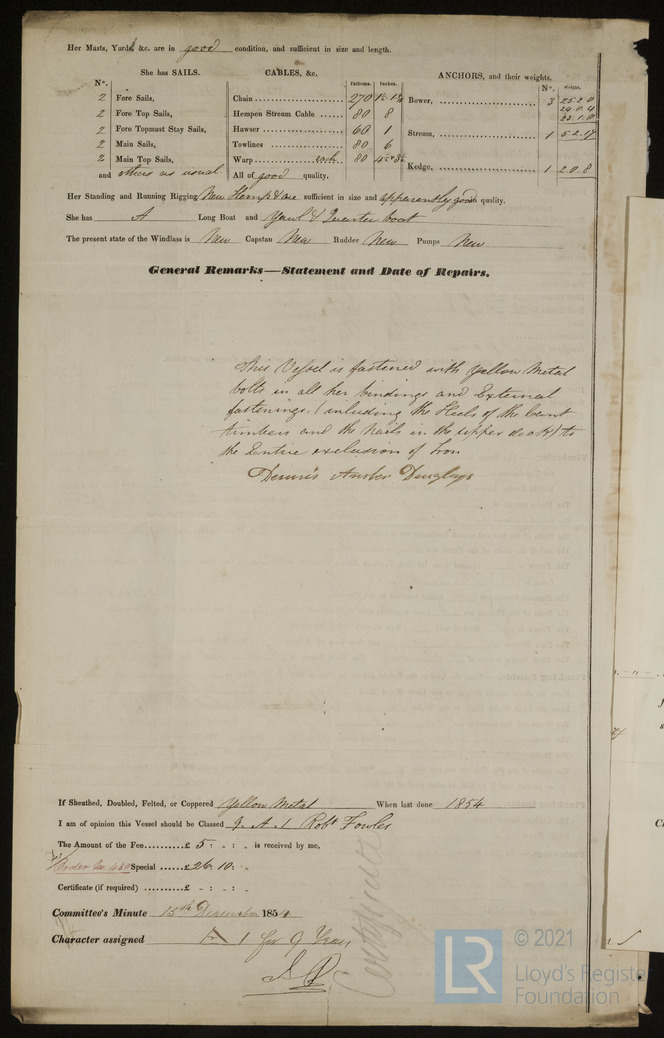 Her Masts, Yards, &c. are in good condition, and sufficient in size and length.
She has SAILS.
N°.
2 Fore Sails,
2 Fore Top Sails,
2 Fore Topmast Stay Sails,
2 Main Sails,
2 Main Top Sails,
and others as usual
CABLES, &c. Fathoms. Inches.
Chain 270
Hempen Stream Cable 80 8
Hawser 60 1
Towlines 80 6
Warp each 80
All of good quality.
ANCHORS, and their weights. N°. Weight.
Bower, 3 25.2.0
24.0.4
23.1.0
Stream, 1 5.2.17
Kedge, 1 2.0.8
Her Standing and Running Rigging New Hemp & are sufficient in size and apparently good quality.
She has A Long Boat and Yawl & Quarter boat
The present state of the Windlass is New Capstan New Rudder New Pumps New
General Remarks—Statement and Date of Repairs.
This Vessel is fastened with Yellow Metal
bolts in all her bindings and External
fastenings (including the Heels of the Cant
timbers and the Nails in the upper deck) to
the Entire exclusion of Iron
Dennis
If Sheathed, Doubled, Felted, or Coppered Yellow Metal When last done 1854
I am of opinion this Vessel should be Classed A 1 Robt Fowler
The Amount of the Fee £ 5 : - : - is received by me,
Special £ 26 : 10 : -
Certificate (if required) £ - : - : -
Committee's Minute 15th December 1854
Character assigned A 1 for 9 Years
Certificate
LR © 2021
Lloyd's Register
Foundation